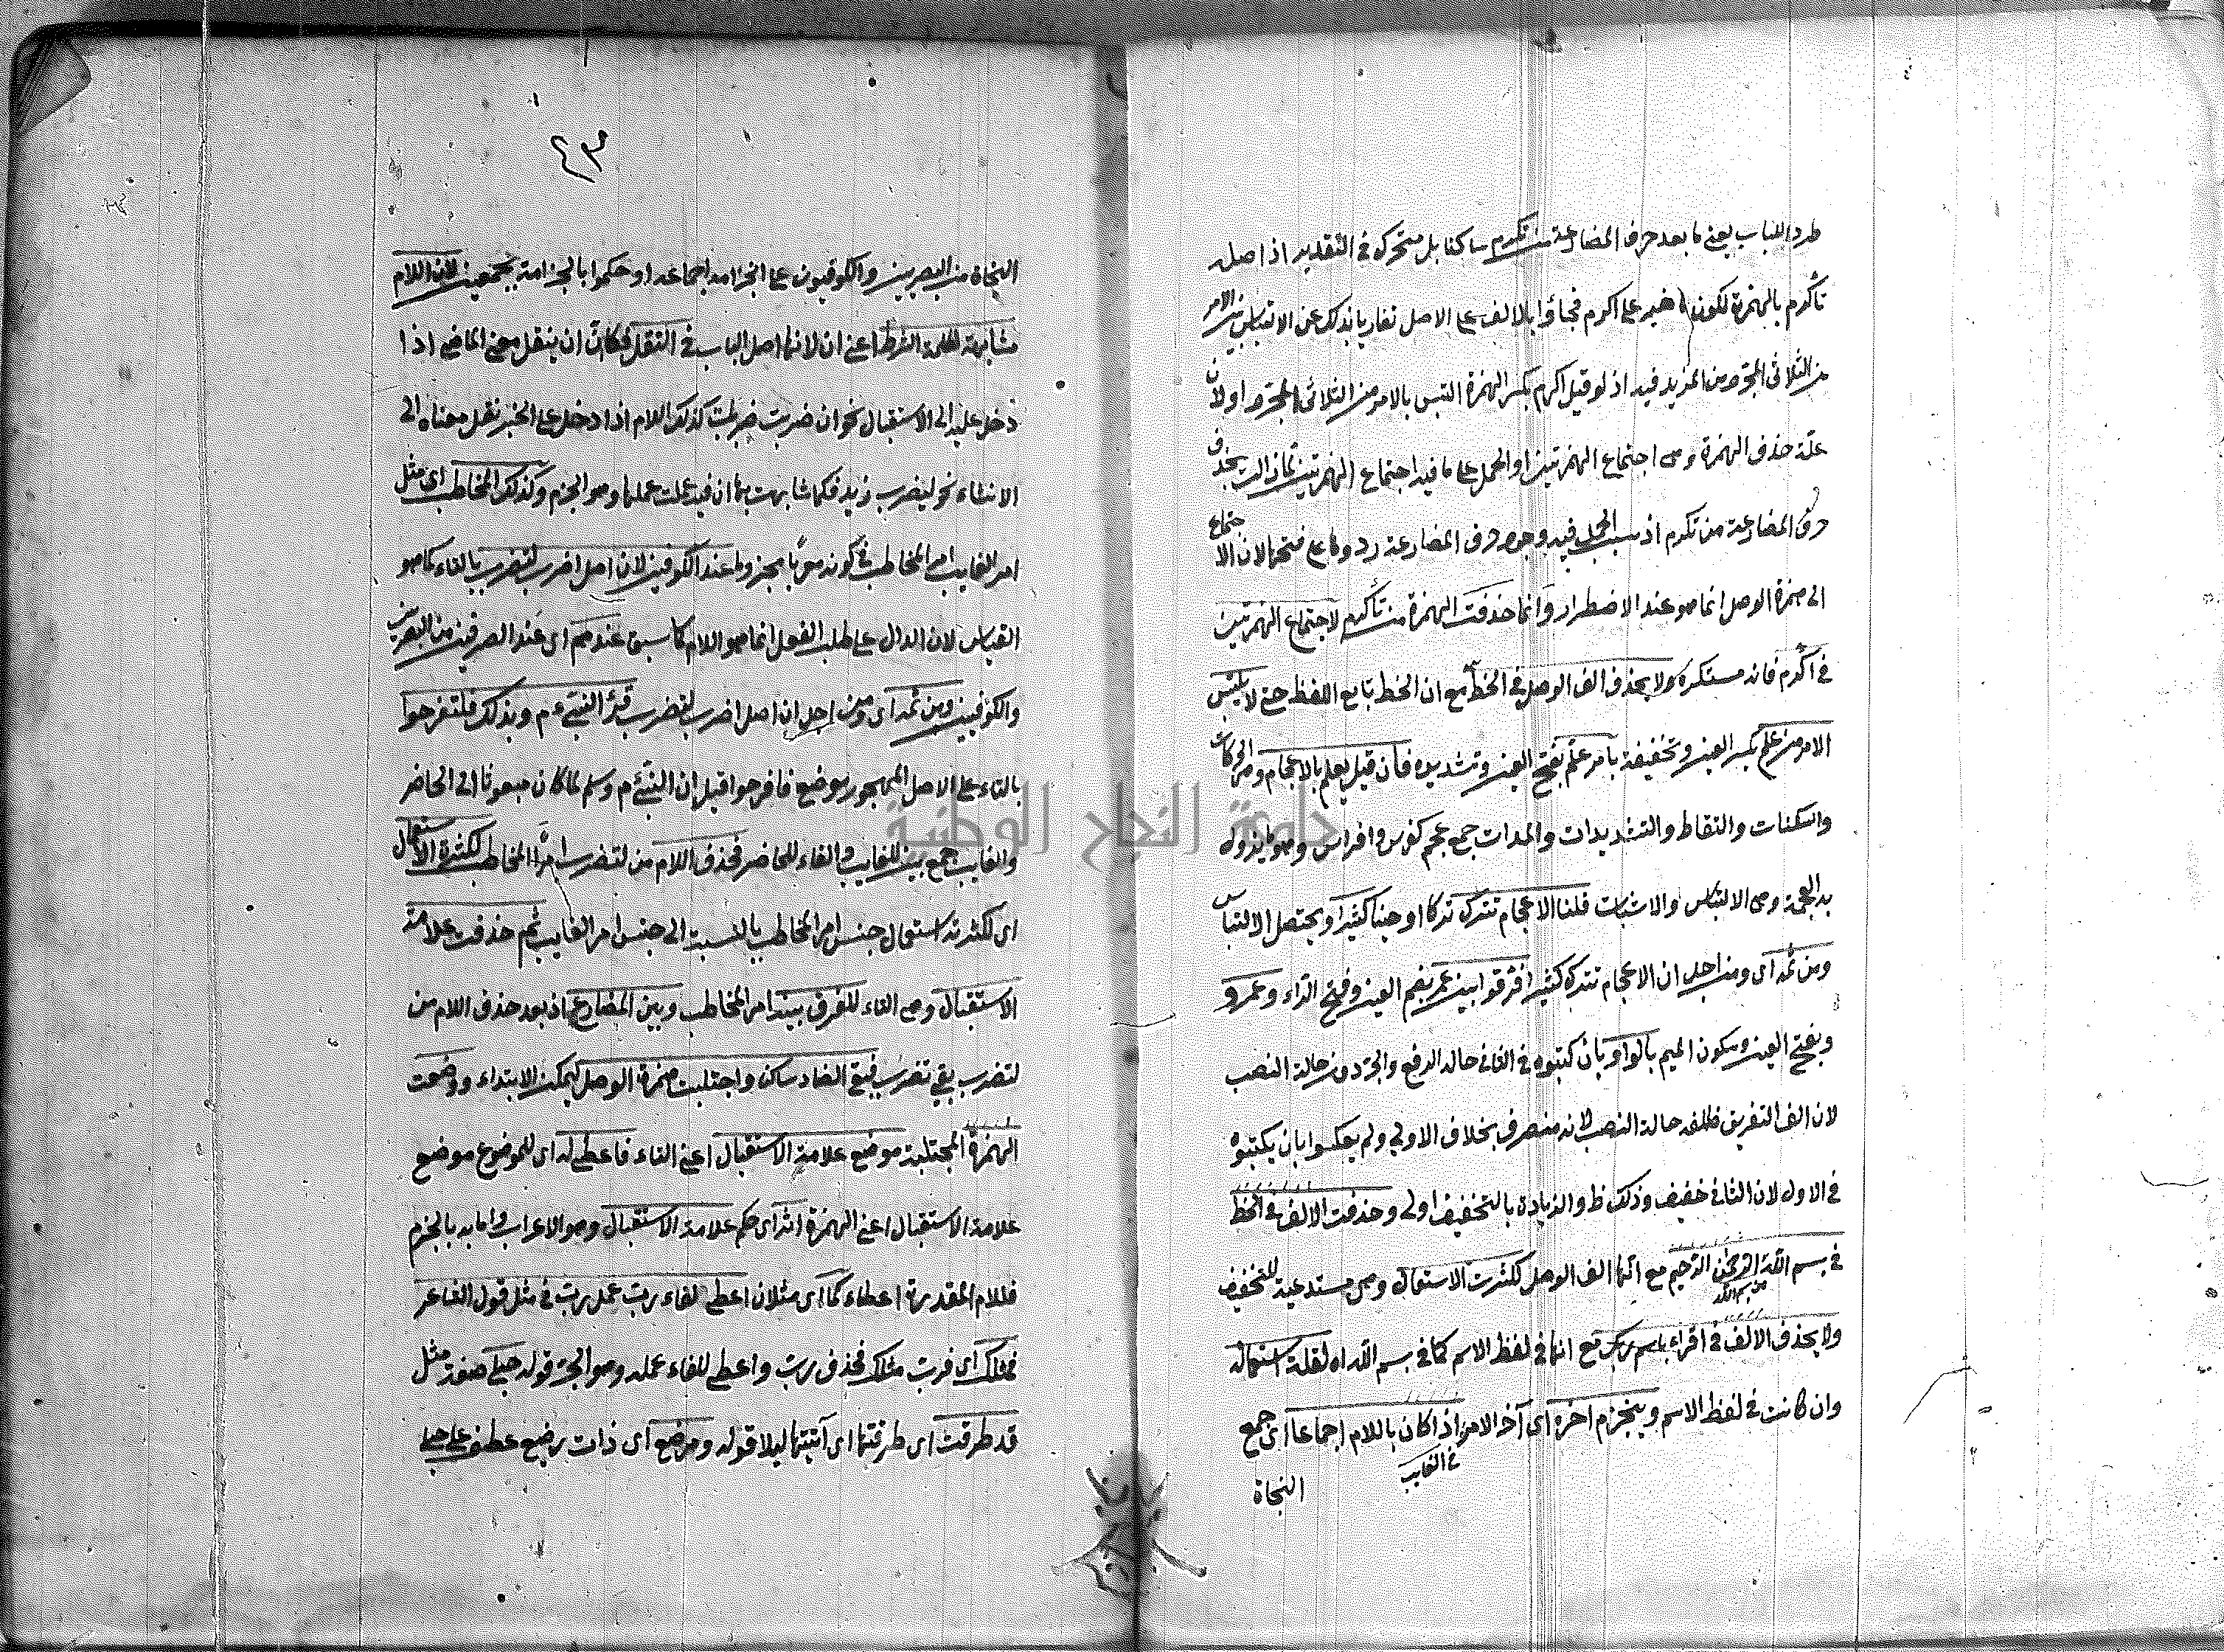 طردا للباب يعني ما بعد حرف المضارعة من تكرم ساكنا بل متحرك في التقدير اذ اصله
تأكرم بالهمزة لكونه على اكرم فجاؤا بالالف على الاصل تفاديا بذلك عن الالتباس بين الامر
من الثلاثى المجرد ومن المزيد فيه اذ لو قيل اكرم بكسر الهمزة التبس بالامر من الثلاثى المجرد او لان
علة حذف الهمزة وهى اجتماع الهمزتين او الحمل على ما فيه اجتماع الهمزتين بحذف
حرف المضارعة من تكرم اذ سبب الحمل فيه وجود حرف المضارعة ردوها على فتحها لان الاحتياج
الى همزة الوصل انما هو عند الاضطرار وانما حذفت الهمزة من تأكرم لاجتماع الهمزتين
في أأكرم فانه مستكره ولا يحذف الف الوصل في الخط مع ان الخط تابع اللفظ حتى لا يلتبس
الامر من علم بكسر العين وتخفيفه بامر علّم بفتح العين وتشديده فان قيل يعلم بالاعجام وهى الحركات
والسكنات والنقاط والتشديدات والمدات جمع عجم كفرس وافراس وهو ما يزول
به العجمة وهى الالتباس والاشتباه قلنا الاعجام تترك تركا او حينا كثيرا ويحتصل الالتباس
ومن ثمه اى ومن اجل ان الاعجام تترك كثيرا فرقوا بين عمر بضم العين وفتح الراء وعمرو
وبفتح العين وسكون الميم بالواو بان كتبوه في الثانى حالة الرفع والجر دون حالة النصب
لان الف التفريق خلفه حالة النصب لانه منصرف بخلاف الاول ولم يعكسوا بان يكتبوه
في الاول لان الثانى خفيف وذلك ظ والزيادة بالتخفيف اولى وحذفت الالف في الخط
في بسم الله الرحمن الرحيم مع انها الف الوصل لكثرت الاستعمال وهى مستدعية للتخفيف
من بسم الله
ولا يحذف الالف في اقراء باسم ربك مع انها في لفظ الاسم كما في بسم الله اه لقلة استعماله
وان كانت في لفظ الاسم وينجزم اخره اى آخر الامر اذا كان باللام اجماعا اى جمع
في الغايب
النحاة
٤٣
النحاة من البصريين والكوفيون على انجزامه اجماعه او حكموا بالجزامة مجمعين لان اللام
مشابهة لكلمة الشرط اعنى ان لانها اصل الباب في النقل فكما ان ان ينقل معنى الماضى اذا
دخل عليه الى الاستقبال نحو ان ضربت ضربت كذلك اللام اذا دخل على الخبر نقل معناه الى
الانشاء نحو ليضرب زيد فكما شابهت بها ان فيه عملت عملها وهو الجزم وكذلك المخاطب اى مثل
امر الغايب امر المخاطب في كونه معربا مجزوما عند الكوفيين لان اصل اضرب لتضرب بالتاء كما هو
القياس لان الدال على طلب الفعل انما هو اللام كما سبق عندهم اى عند الصرفيين من البصريين
والكوفيين ومن ثمه اى ومن اجل ان اصل اضرب لتضرب قرأ النبىء م وبذلك فلتفرحوا
بالتاء على الاصل المهجور موضع فافرحوا قيل ان النبىء م وسلم لما كان مبعوثا الى الحاضر
والغايب جمع بين للغايب والتاء للحاضر فحذف اللام من لتضرب امر المخاطب لكثرة الاستعمال
اى لكثرته استعمال جنس امر المخاطب بالنسبة الى جنس امر الغايب ثم حذفت علامة
الاستقبال وهى التاء للفرق بينه امر المخاطب وبين المضارع اذ بعد حذف اللام من
لتضرب بقى تضرب فبقى الضاد ساكنا واجتلبت همزة الوصل ليمكن الابتداء ووضعت
الهمزة المجتلبة موضع علامة الاستقبال اعنى التاء فاعطى له اى للموضوع موضع
علامة الاستقبال اعنى الهمزة اثر اى حكم علامة الاستقبال وهو الاعراب واما به بالجزم
فللام المقدرة اعطاء كما اى مثلان اعطى لفاء ربت عمل ربت في مثل قول الشاعر
فمثلك اى فرب مثلك فحذف رب واعطى للفاء عمله وهو الجر قوله حبلى صفة مثل
قد طرقت اى طرقتها اى آتيتها ليلا قوله ومرضع اى ذات رضيع عطف على حبلى
جامعة النجاح الوطنية